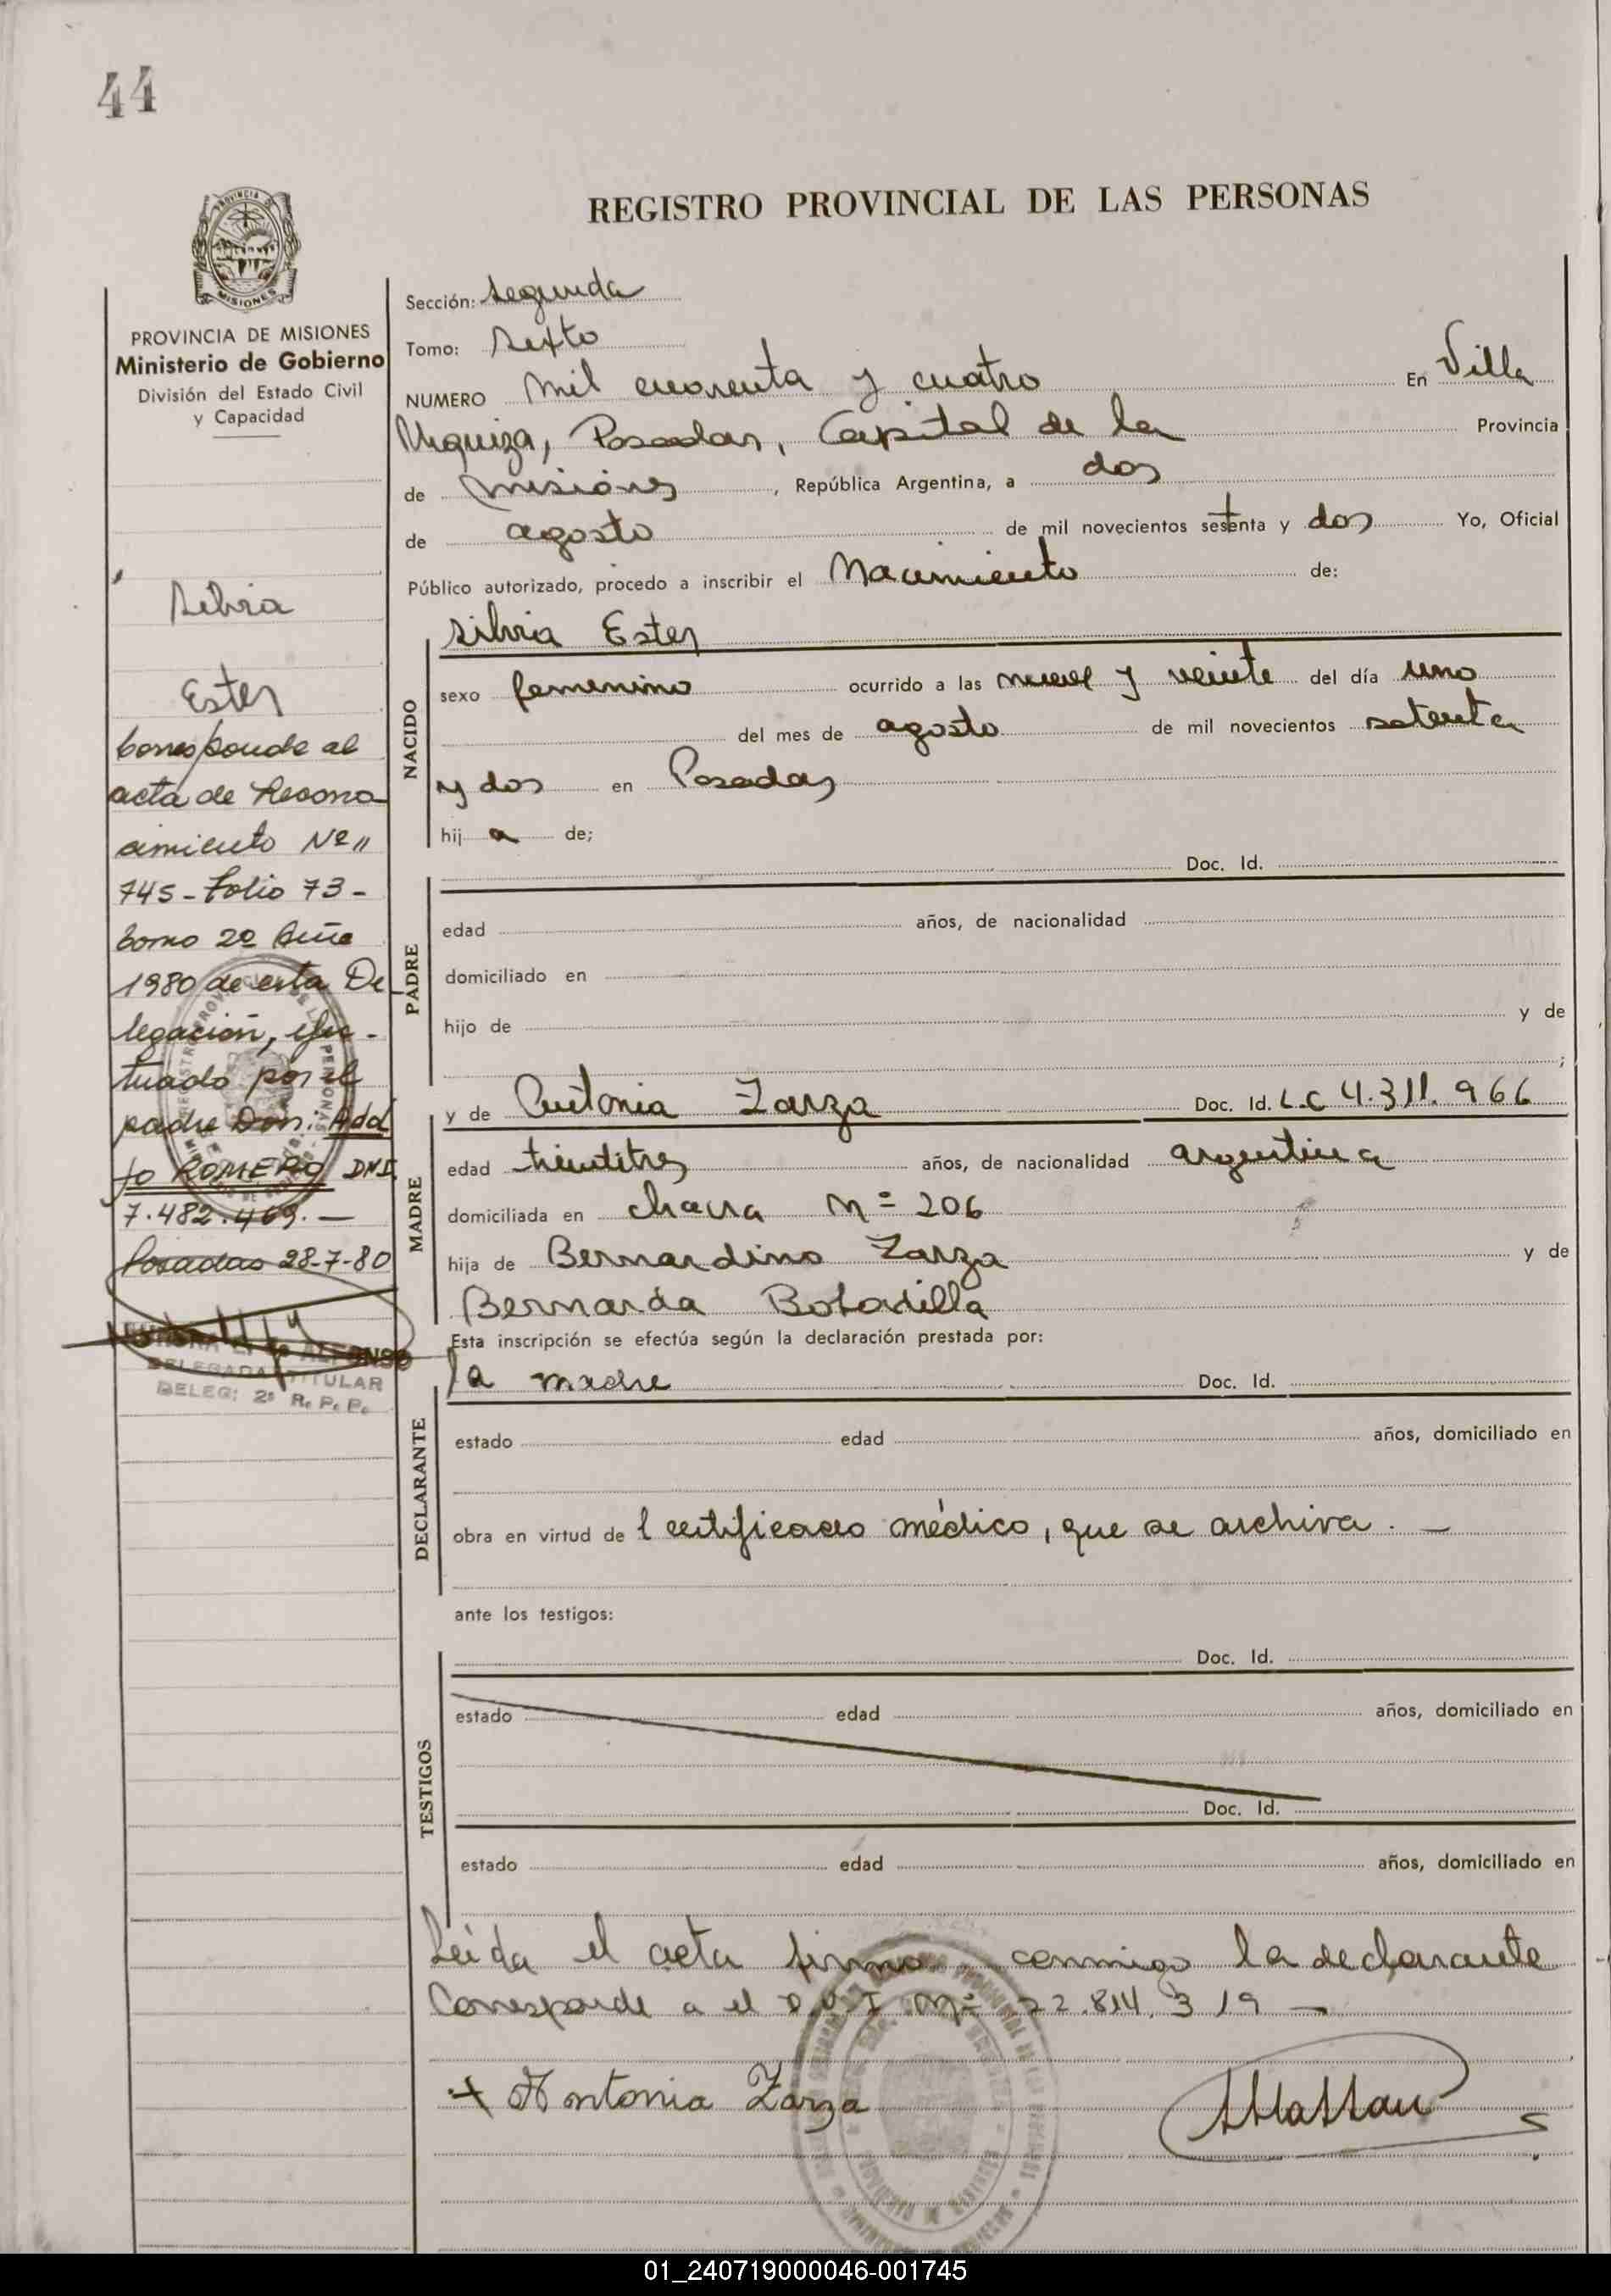 44
REGISTRO PROVINCIAL DE LAS PERSONAS
PROVINCIA DE MISIONES
Ministerio de Gobierno
División del Estado Civil
y Capacidad
Silvia
Ester
Corresponde al
acta de Recono
cimiento Nº "
745 - Folio 73 -
Tomo 2º Año
1980 de esta De
legación, efec-
tuado por el
padre Don. Adol
fo ROMERO DNI.
7.482.469. —
Posadas 28-7-80
ALFONSO
DELEGADA TITULAR
DELEG: 2ª R. P. P.
Sección: segunda
Tomo: Sexto
NUMERO mil cuarenta y cuatro En Villa
Urquiza, Posadas, Capital de la Provincia
de misiones, República Argentina, a dos
de agosto de mil novecientos setenta y dos Yo, Oficial
Público autorizado, procedo a inscribir el Nacimiento de:
Silvia Ester
NACIDO
sexo femenino ocurrido a las nueve y veinte del día uno
del mes de agosto de mil novecientos setenta
y dos en Posadas
hij a de;
Doc. Id.
PADRE
edad años, de nacionalidad
domiciliado en
hijo de y de
;
y de Antonia Zarza Doc. Id. L.C 4.311.966
MADRE
edad treintitres años, de nacionalidad argentina
domiciliada en chacra Nº 206
hija de Bernardino Zarza y de
Bernarda Bobadilla
Esta inscripción se efectúa según la declaración prestada por:
la madre Doc. Id.
DECLARANTE
estado edad años, domiciliado en
obra en virtud de l certificado médico, que se archiva. —
ante los testigos:
Doc. Id.
TESTIGOS
estado edad años, domiciliado en
Doc. Id.
estado edad años, domiciliado en
Leida el acta firma conmigo la declarante
Corresponde a el D.N.I Nº 22.814.319 —
+ Antonia Zarza
01_240719000046-001745